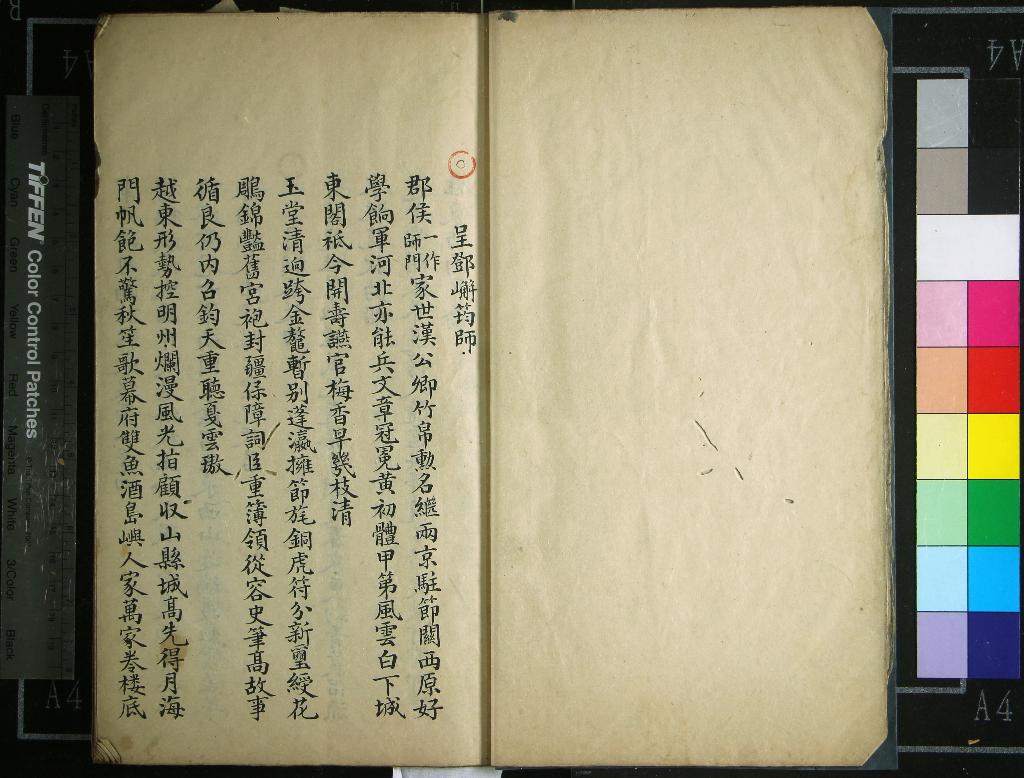 呈鄧嶰筠師
郡侯一作師門家世漢公卿竹帛勳名繼兩京駐節關西原好
學餉軍河北亦能兵文章冠冕黃初體甲第風雲白下城
東閣祗今開壽讌官梅香早幾枝清
玉堂清迥跨金鼇暫别蓬瀛擁節旄銅虎符分新璽綬花
鵰錦豔舊宮袍封疆保障詞臣重簿領從容史筆高故事
循良仍内召鈞天重聽戛雲璈
越東形勢控明州爛漫風光指顧收山縣城高先得月海
門帆飽不驚秋笙歌幕府雙魚酒島嶼人家萬家卷樓底
TIFFEN Color Control Patches
Blue
Cyan
Green
Yellow
Red
Magenta
White
3/Color
Black
A4
A4
A4
A4